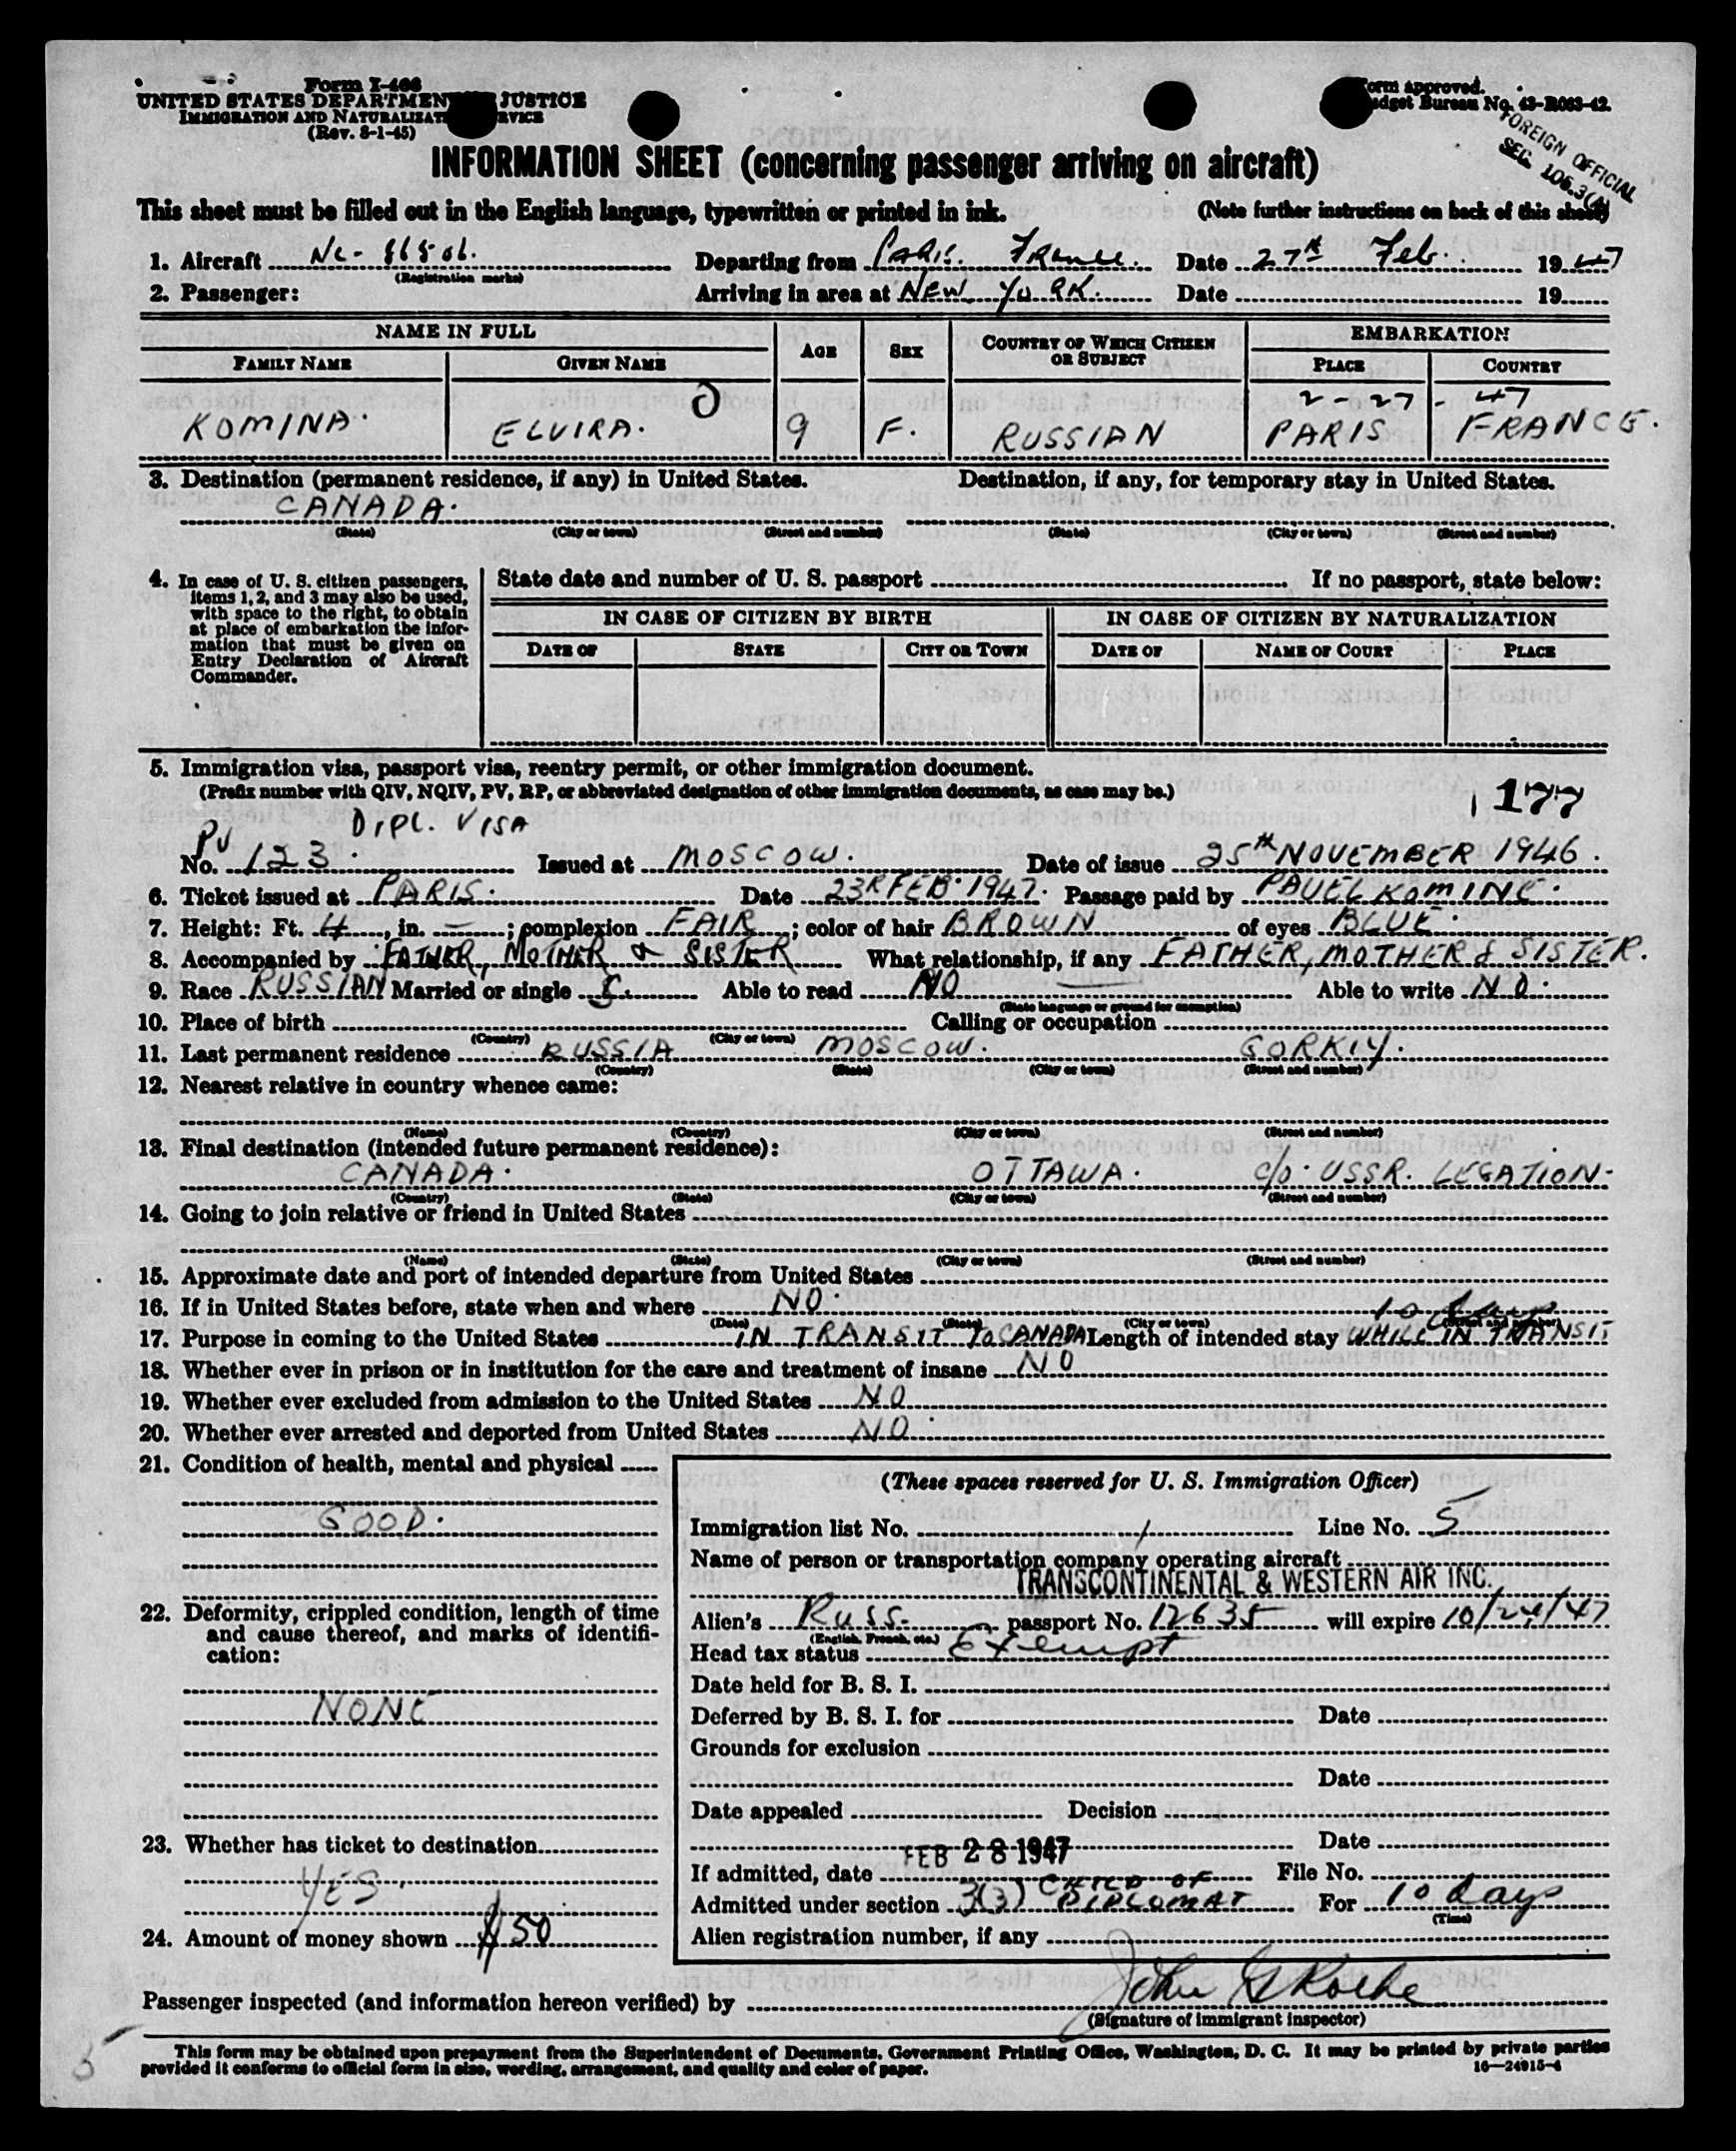 Form I-466
UNITED STATES DEPARTMENT JUSTICE
IMMIGRATION AND NATURALIZATION SERVICE
(Rev. 8-1-45)
Form approved.
Budget Bureau No. 43-R063-42.
FOREIGN OFFICIAL
SEC. 105.3(A)
INFORMATION SHEET (concerning passenger arriving on aircraft)
This sheet must be filled out in the English language, typewritten or printed in ink. (Note further instructions on back of this sheet)
1. Aircraft NC-86506. Departing from PARIS. FRANCE. Date 27th Feb. 1947
(Registration marks)
2. Passenger: Arriving in area at NEW YORK. Date 19
NAME IN FULL AGE SEX COUNTRY OF WHICH CITIZEN OR SUBJECT EMBARKATION
FAMILY NAME GIVEN NAME PLACE COUNTRY
2-27-47
KOMINA. ELVIRA. 9 F. RUSSIAN PARIS FRANCE.
3. Destination (permanent residence, if any) in United States. Destination, if any, for temporary stay in United States.
CANADA.
(State) (City or town) (Street and number) (State) (City or town) (Street and number)
4. In case of U. S. citizen passengers, items 1, 2, and 3 may also be used, with space to the right, to obtain at place of embarkation the information that must be given on Entry Declaration of Aircraft Commander.
State date and number of U. S. passport If no passport, state below:
IN CASE OF CITIZEN BY BIRTH IN CASE OF CITIZEN BY NATURALIZATION
DATE OF STATE CITY OR TOWN DATE OF NAME OF COURT PLACE
5. Immigration visa, passport visa, reentry permit, or other immigration document.
(Prefix number with QIV, NQIV, PV, RP, or abbreviated designation of other immigration documents, as case may be.)
177
PV DIPL. VISA
No. 123. Issued at MOSCOW. Date of issue 25th NOVEMBER 1946.
6. Ticket issued at PARIS. Date 23R FEB. 1947. Passage paid by PAVEL KOMINE.
7. Height: Ft. 4, in. —; complexion FAIR; color of hair BROWN of eyes BLUE.
8. Accompanied by FATHER, MOTHER & SISTER What relationship, if any FATHER, MOTHER & SISTER.
9. Race RUSSIAN Married or single S. Able to read NO Able to write NO.
(State language or ground for exemption)
10. Place of birth Calling or occupation
(Country) (City or town)
11. Last permanent residence RUSSIA MOSCOW. GORKIY.
(Country) (State) (City or town) (Street and number)
12. Nearest relative in country whence came:
(Name) (Country) (City or town) (Street and number)
13. Final destination (intended future permanent residence):
CANADA. OTTAWA. c/o. USSR. LEGATION.
(Country) (State) (City or town) (Street and number)
14. Going to join relative or friend in United States
(Name) (State) (City or town) (Street and number)
15. Approximate date and port of intended departure from United States
16. If in United States before, state when and where NO.
(Date) (State) (City or town) (Street and number)
10 days
17. Purpose in coming to the United States IN TRANSIT TO CANADA Length of intended stay WHILE IN TRANSIT
18. Whether ever in prison or in institution for the care and treatment of insane NO
19. Whether ever excluded from admission to the United States NO
20. Whether ever arrested and deported from United States NO.
21. Condition of health, mental and physical
GOOD.
22. Deformity, crippled condition, length of time and cause thereof, and marks of identification:
NONE
23. Whether has ticket to destination
YES.
24. Amount of money shown $50
(These spaces reserved for U. S. Immigration Officer)
Immigration list No. 1 Line No. 5
Name of person or transportation company operating aircraft
TRANSCONTINENTAL & WESTERN AIR INC.
Alien's Russ. passport No. 12635 will expire 10/24/47
(English, French, etc.)
Head tax status Exempt
Date held for B. S. I.
Deferred by B. S. I. for Date
Grounds for exclusion
Date
Date appealed Decision
Date
FEB 28 1947
If admitted, date File No.
Admitted under section 3(3) CHILD OF DIPLOMAT For 10 days
(Time)
Alien registration number, if any
Passenger inspected (and information hereon verified) by John G Roche
(Signature of immigrant inspector)
5
This form may be obtained upon prepayment from the Superintendent of Documents, Government Printing Office, Washington, D. C. It may be printed by private parties
provided it conforms to official form in size, wording, arrangement, and quality and color of paper. 16—24915-4